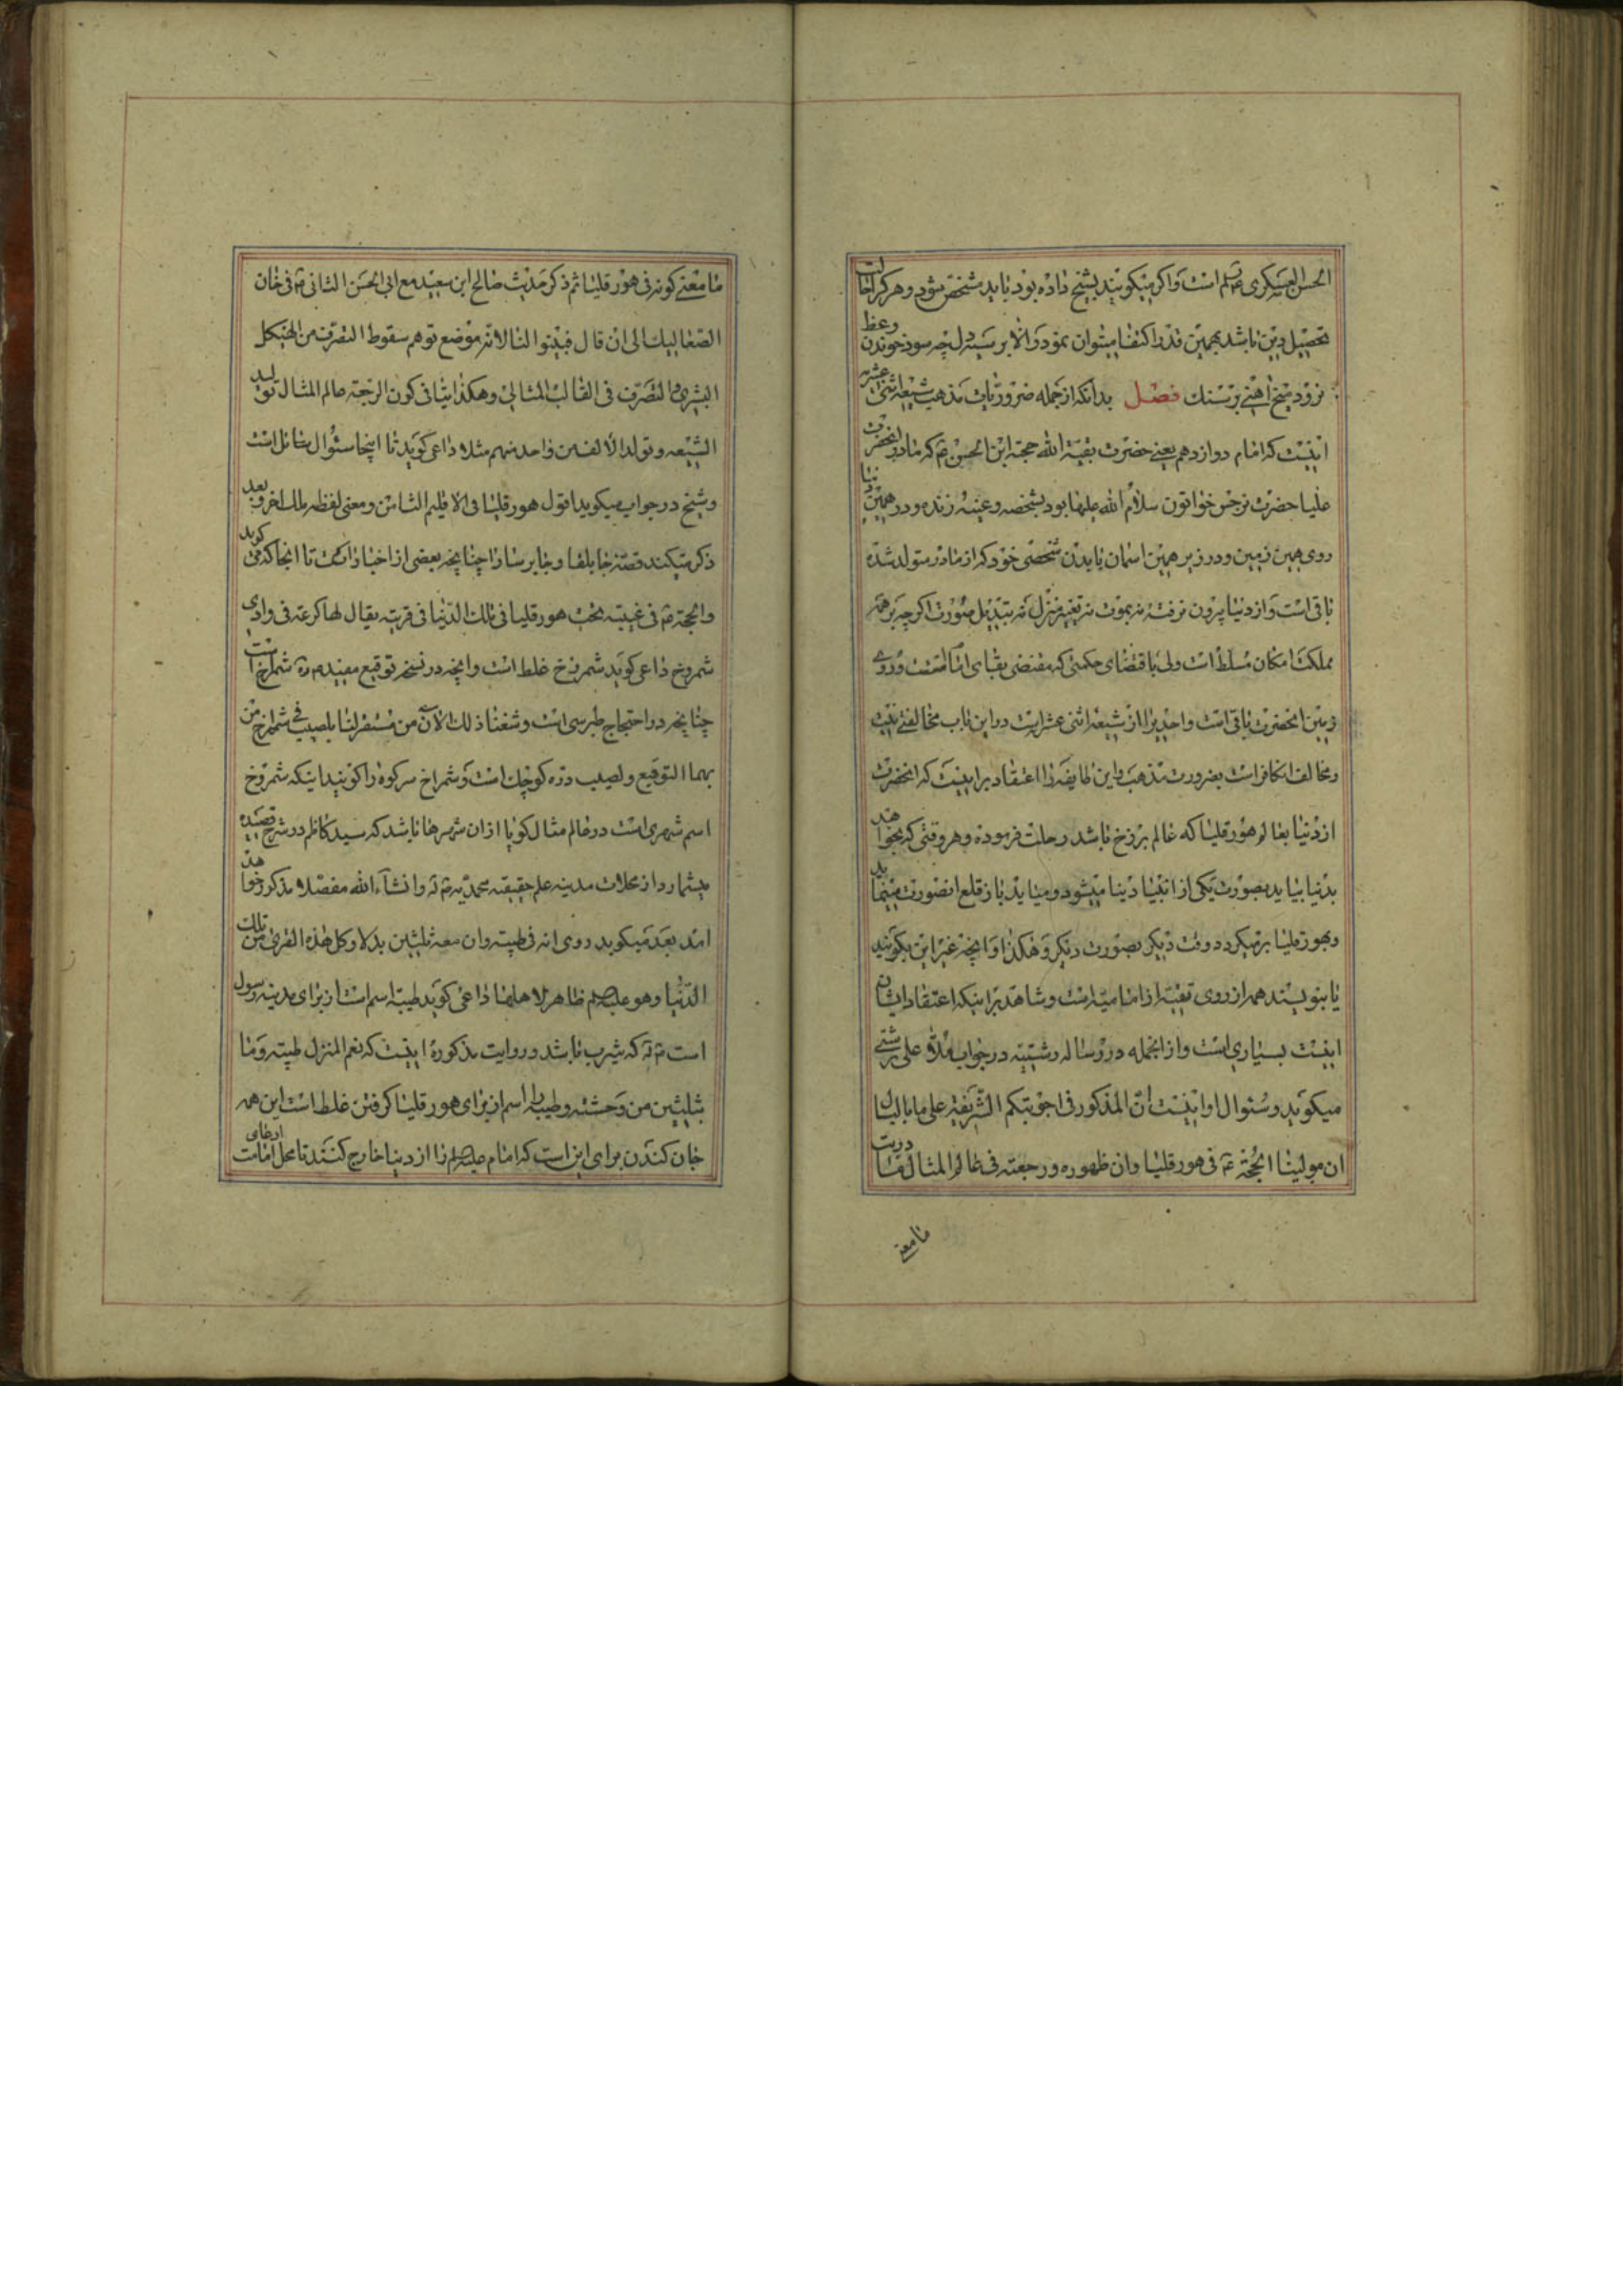 الحسن العسکری ع است و اکر میکویند بشیخ داده بود باید مشخص شود و هر کرا حالت
تحصیل دین باشد بهمین قدر اکتفا میتوان نمود والا بر سیه دل چه سود خوندن وعظ
نرود میخ اهنی بر سنک فصل بدانکه از جمله ضروریات مذهب شیعه اثنی عشریه
اینست که امام دوازدهم یعنی حضرت بقیة الله حجة ابن الحسن ع که مادر انحضرت
علیا حضرت نرجس خواتون سلام الله علیها بود بشخصه و عینه زنده و در همین دنیا
روی همین زمین و در زیر همین اسمان با بدن شخصی خود که از مادر متولد شده
باقی است و از دنیا بیرون نرفته نه بموت نه بتغییر منزل نه بتبدیل صورت اکرچه بر همه
مملکت امکان مسلط است ولی باقتضای حکمتی که مقتضی بقای امامتست در روی
زمین انحضرت باقی است واحدیرا از شیعه اثنی عشرایت در این باب مخالفتی نیست
و مخالف کافر است بضرورت مذهب و این طایفه را اعتقاد بر اینست که انحضرت
از دنیا بعالم هورقلیا که عالم برزخ باشد رحلت فرموده و هر وقتی که بخواهد
بدنیا بیاید بصورت یکی از انبیا دنیا میشود و میاید باز قلع انصورت مینماید
و بهورقلیا برمیکردد و وقت دیکر بصورت دیکر و هکذا و انچه غیر این بکویند
یا بنویسند همه از روی تقیه از امامیه است و شاهد بر اینکه اعتقاد ایشان
اینست بسیاری است و از انجمله در رساله رشتیه در جواب ملا علی رشتی
میکوید و سئوال او اینست انّ المذکور فی اجوبتکم الشریفة علی ما بالبال
ان مولینا الحجة ع فی هورقلیا وان ظهوره و رجعته فی عالم المثال فما دریت
ما معنی
ما معنی کونه فی هورقلیا ثم ذکر حدیث صالح ابن سعید مع ابی الحسن الثانی ع فی خان
الصعالیک الی ان قال فبینوا لنا لانه موضع توهم سقوط التصرف من الهیکل
البشری والتصرف فی القالب المثالی وهکذا بیانی کون الرجعة عالم المثال تولید
الشیعه و تولد الالف من واحد منهم مثلا داعی کوید تا اینجا سئوال سائل است
و شیخ در جواب میکوید اقول هورقلیا فی الاقلیم الثامن و معنی لفظه ملک اخر و بعد
ذکر میکند قصه جابلقا و جابرسا را چنانچه بعضی از اخبار است تا انجا که کوید
والحجة ع فی غیبته تحت هورقلیا فی تلک الدنیا فی قریة یقال لها کرعه فی وادی
شمروخ داعی کوید شمروخ غلط است و انچه در نسخه توقیع مفید ره شمراخ است
چنانچه در احتجاج طبرسی است و شغنا ذلک الان من مستقر لنا بلصیب فی شمراخ من
بهما التوقیع و لصیب دره کوچک است و شمراخ سر کوه را کویند اینکه شمروخ
اسم شهری است در عالم مثال کویا از ان شهرها باشد که سید کاظم در شرح قصیده
میشمارد از محلات مدینه علم حقیقه محمدیه ع نه و انشاءالله مفصلا مذکور خواهد
امد بعد میکوید روی انه فی طیبه وان معه ثلثین بدلا وکل هذه القری من تلک
الدنیا وهو علیه السلم ظاهر لاهلها داعی کوید طیبه اسم است از برای مدینه رسول
است ع نه که یثرب باشد و روایت مذکوره اینست که نعم المنزل طیبه و ما
بثلثین من وحشته و طیبه را اسم از برای هورقلیا کرفتن غلط است این همه
خان کندن برای این است که امام علیه السلم را از دنیا خارج کنند تا محل ادعای امامت